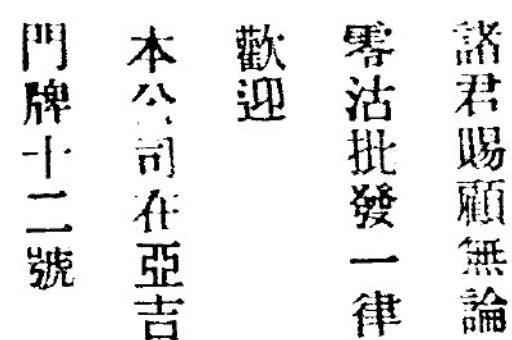 諸君賜顧無論
零沽批發一律
歡迎
本公司在亞吉
門牌十二號